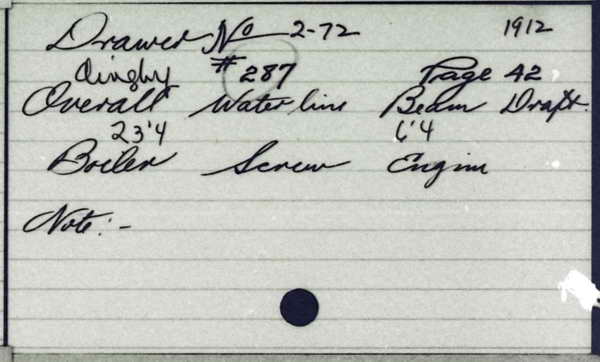 Drawer No 2-72 1912
Dinghy #287 Page 42
Overall Waterline Beam Draft.
23'4 6'4
Boiler Screw Engine
Note:-